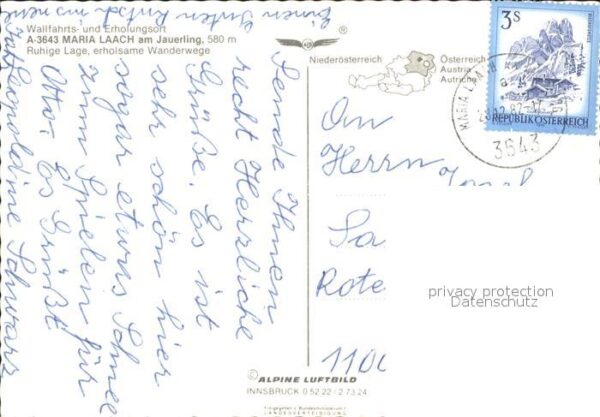 Wallfahrts- und Erholungsort
A-3643 MARIA LAACH am Jauerling, 580 m
Ruhige Lage, erholsame Wanderwege
Niederösterreich
Österreich
Austria
Autriche
3 S
REPUBLIK ÖSTERREICH
MARIA LAACH
3643
Einen Guten Rutsch ins neue
Sende Ihnen
recht Herzliche
Grüße. Es ist
sehr schön hier
sogar etwas Schnee
zum Spielen für
Otto. Es Grüßt
Leopoldine Schwarz
An
Herrn Josef
Sa
Rote
110
privacy protection
Datenschutz
© ALPINE LUFTBILD
INNSBRUCK 0 52 22 / 2 73 24
Freigegeben v. Bundesministerium f.
LANDESVERTEIDIGUNG